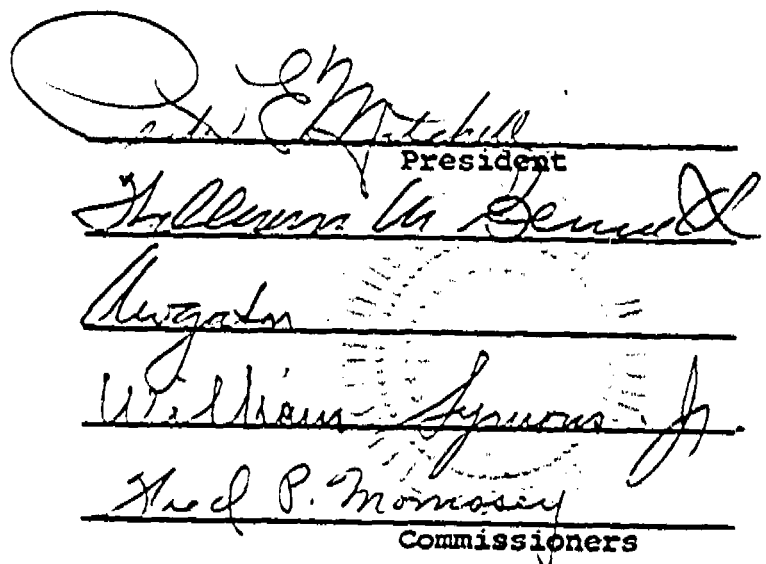 E. Mitchell
President
William M. Bennett
William Symons Jr.
Fred P. Morrissey
Commissioners